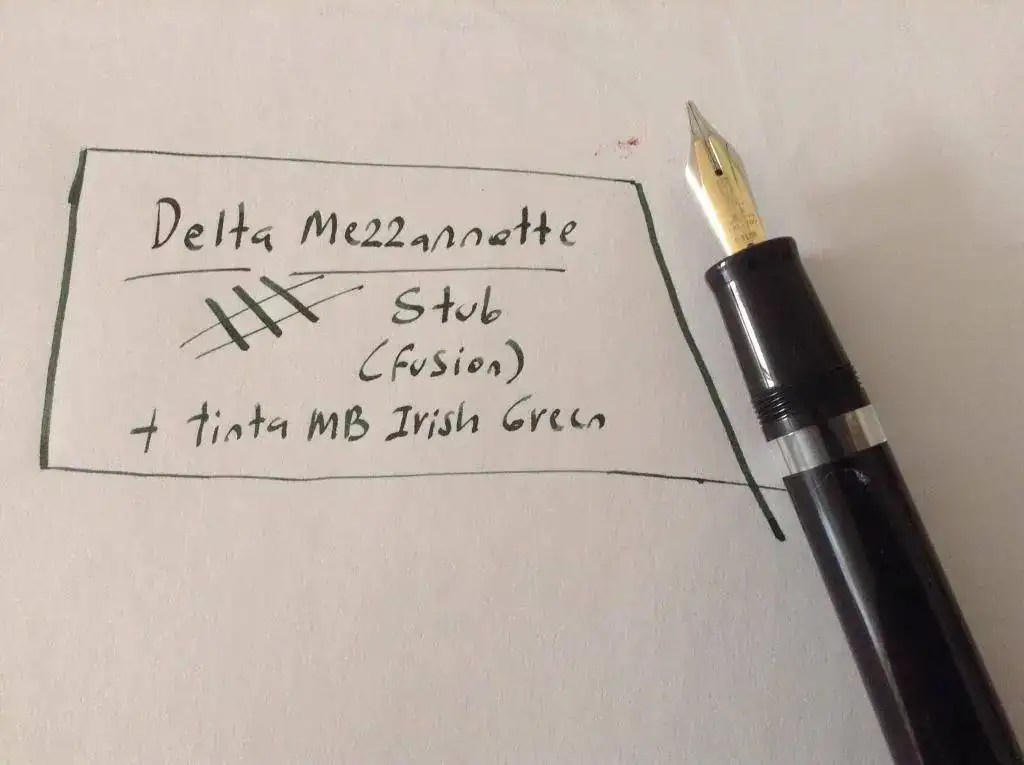 Delta Mezzannotte
Stub
(Fusion)
+ tinta MB Irish Green